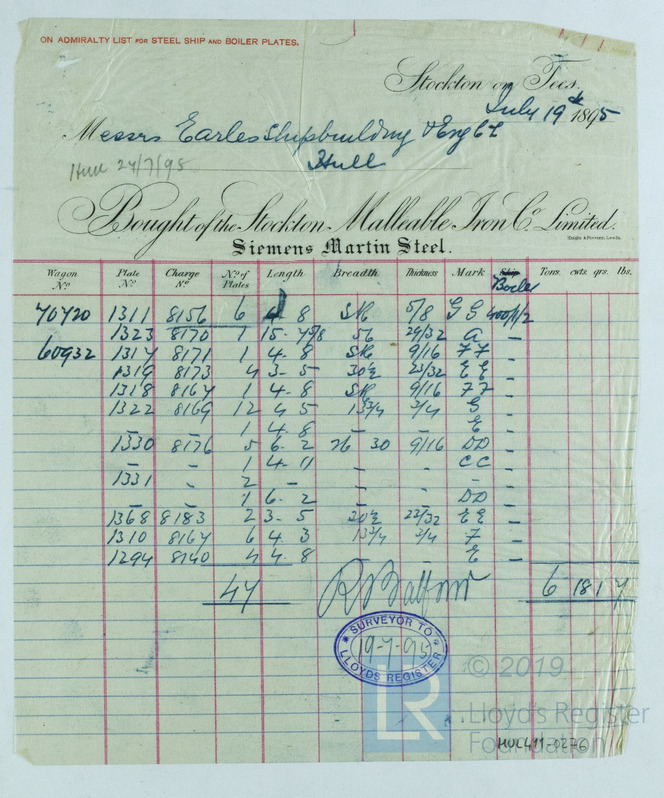 ON ADMIRALTY LIST FOR STEEL SHIP AND BOILER PLATES.
Stockton on Tees.
July 19th 1895
Messrs Earles Shipbuilding & Eng Co
Hull
Hull 24/7/95
Bought of the Stockton Malleable Iron Co. Limited.
Siemens Martin Steel.
Wagon No. Plate No. Charge No. No. of Plates Length Breadth Thickness Mark Ship Boiler Tons. cwts. qrs. lbs.
70720 1311 8156 6 4 8 SK 5/8 G G 400/1/2
1323 8170 1 15 - 4 5/8 56 29/32 A -
60932 1317 8171 1 4 - 8 SK 9/16 F F -
1319 8173 4 3 - 5 30 1/2 23/32 E E -
1318 8164 1 4 - 8 SK 9/16 F F -
1322 8169 12 4 5 13 3/4 3/4 G -
- - 1 4 - 8 E -
1330 8176 5 6 - 2 26 30 9/16 DD -
- 1 4 - 11 - - CC -
1331 - 2 - - - - -
- - 1 6 - 2 - - DD -
1368 8183 2 3 - 5 30 1/2 23/32 E E -
1310 8164 6 4 3 13 3/4 3/4 F -
1294 8140 4 4 - 8 E -
47 6 18 1 7
SURVEYOR TO
19-7-95
LLOYDS REGISTER
LR
© 2019
Lloyd's Register
Foundation
HUL411-0276